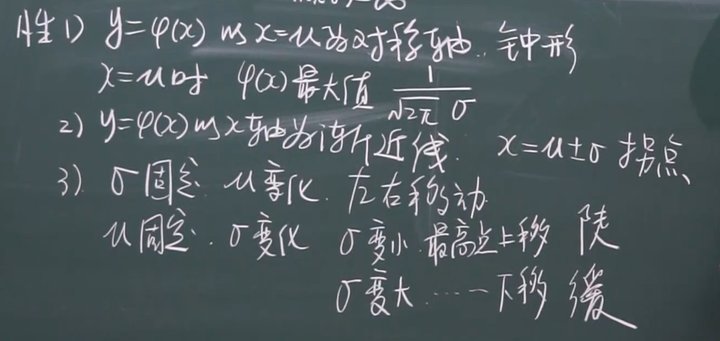 性 1) y=φ(x) 以 x=μ 为对称轴. 钟形
x=μ时 φ(x)最大值 1/(√2π σ)
2) y=φ(x)以x轴为渐近线. x=μ±σ 拐点
3) σ固定 μ变化. 左右移动
μ固定. σ变化 σ变小 最高点上移 陡
σ变大 …… 下移 缓